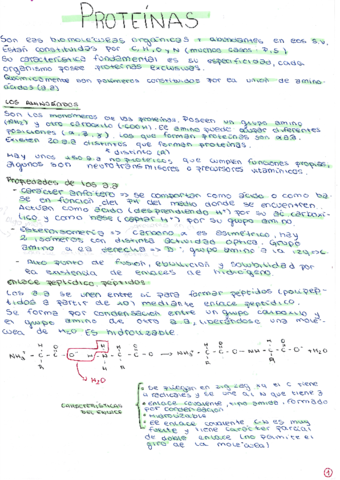 PROTEÍNAS
Son las biomoléculas orgánicas + abundantes en los s.v.
Están constituidas por C, H, O y N (muchos casos P, S)
Su característica fundamental es su especificidad, cada
organismo posee proteínas exclusivas.
Químicamente son polímeros constituidos por la unión de amino
ácidos (a.a)
LOS AMINOÁCIDOS
Son los monómeros de las proteínas. Poseen un grupo amino
(NH₂) y otro carboxilo (-COOH). El amino puede ocupar diferentes
posiciones (α, β, γ). Los que forman proteínas son αaa.
Existen 20 a.a distintos que forman proteínas.
↳ distinto (R)
Hay unos 150 a.a no proteicos, que cumplen funciones propias,
algunos son neurotransmisores o precursores vitamínicos.
Propiedades de los a.a
- Carácter anfótero => se comportan como ácido o como ba
se en función del PH del medio donde se encuentren
Actúan como ácido (desprendiendo H⁺) por su ác carboxí-
lico, y como base (captar H⁺) por su grupo amino
- Estereoisomería => Carbono α es asimétrico, hay
2 isómeros con distinta actividad óptica. Grupo
amino a la derecha => D, grupo amino a la izq => L
- Alto punto de fusión, ebullición y solubilidad por
la existencia de enlaces de hidrógeno
Enlace peptídico péptidos
Los a.a se unen entre sí para formar péptidos (polipép-
tidos a partir de 10) mediante enlace peptídico.
Se forma por condensación entre un grupo carboxilo y
el grupo amino de otro a.a, liberándose una molé-
cula de H₂O ES hidrolizable
H₂O
+H₂O
CARACTERÍSTICAS
DEL ENLACE
• enlace covalente, tipo amida, formado
por condensación
• Hidrolizable
• El enlace covalente C-N es muy
fuerte y tiene carácter parcial
de doble enlace (no permite el
giro de la molécula)
1